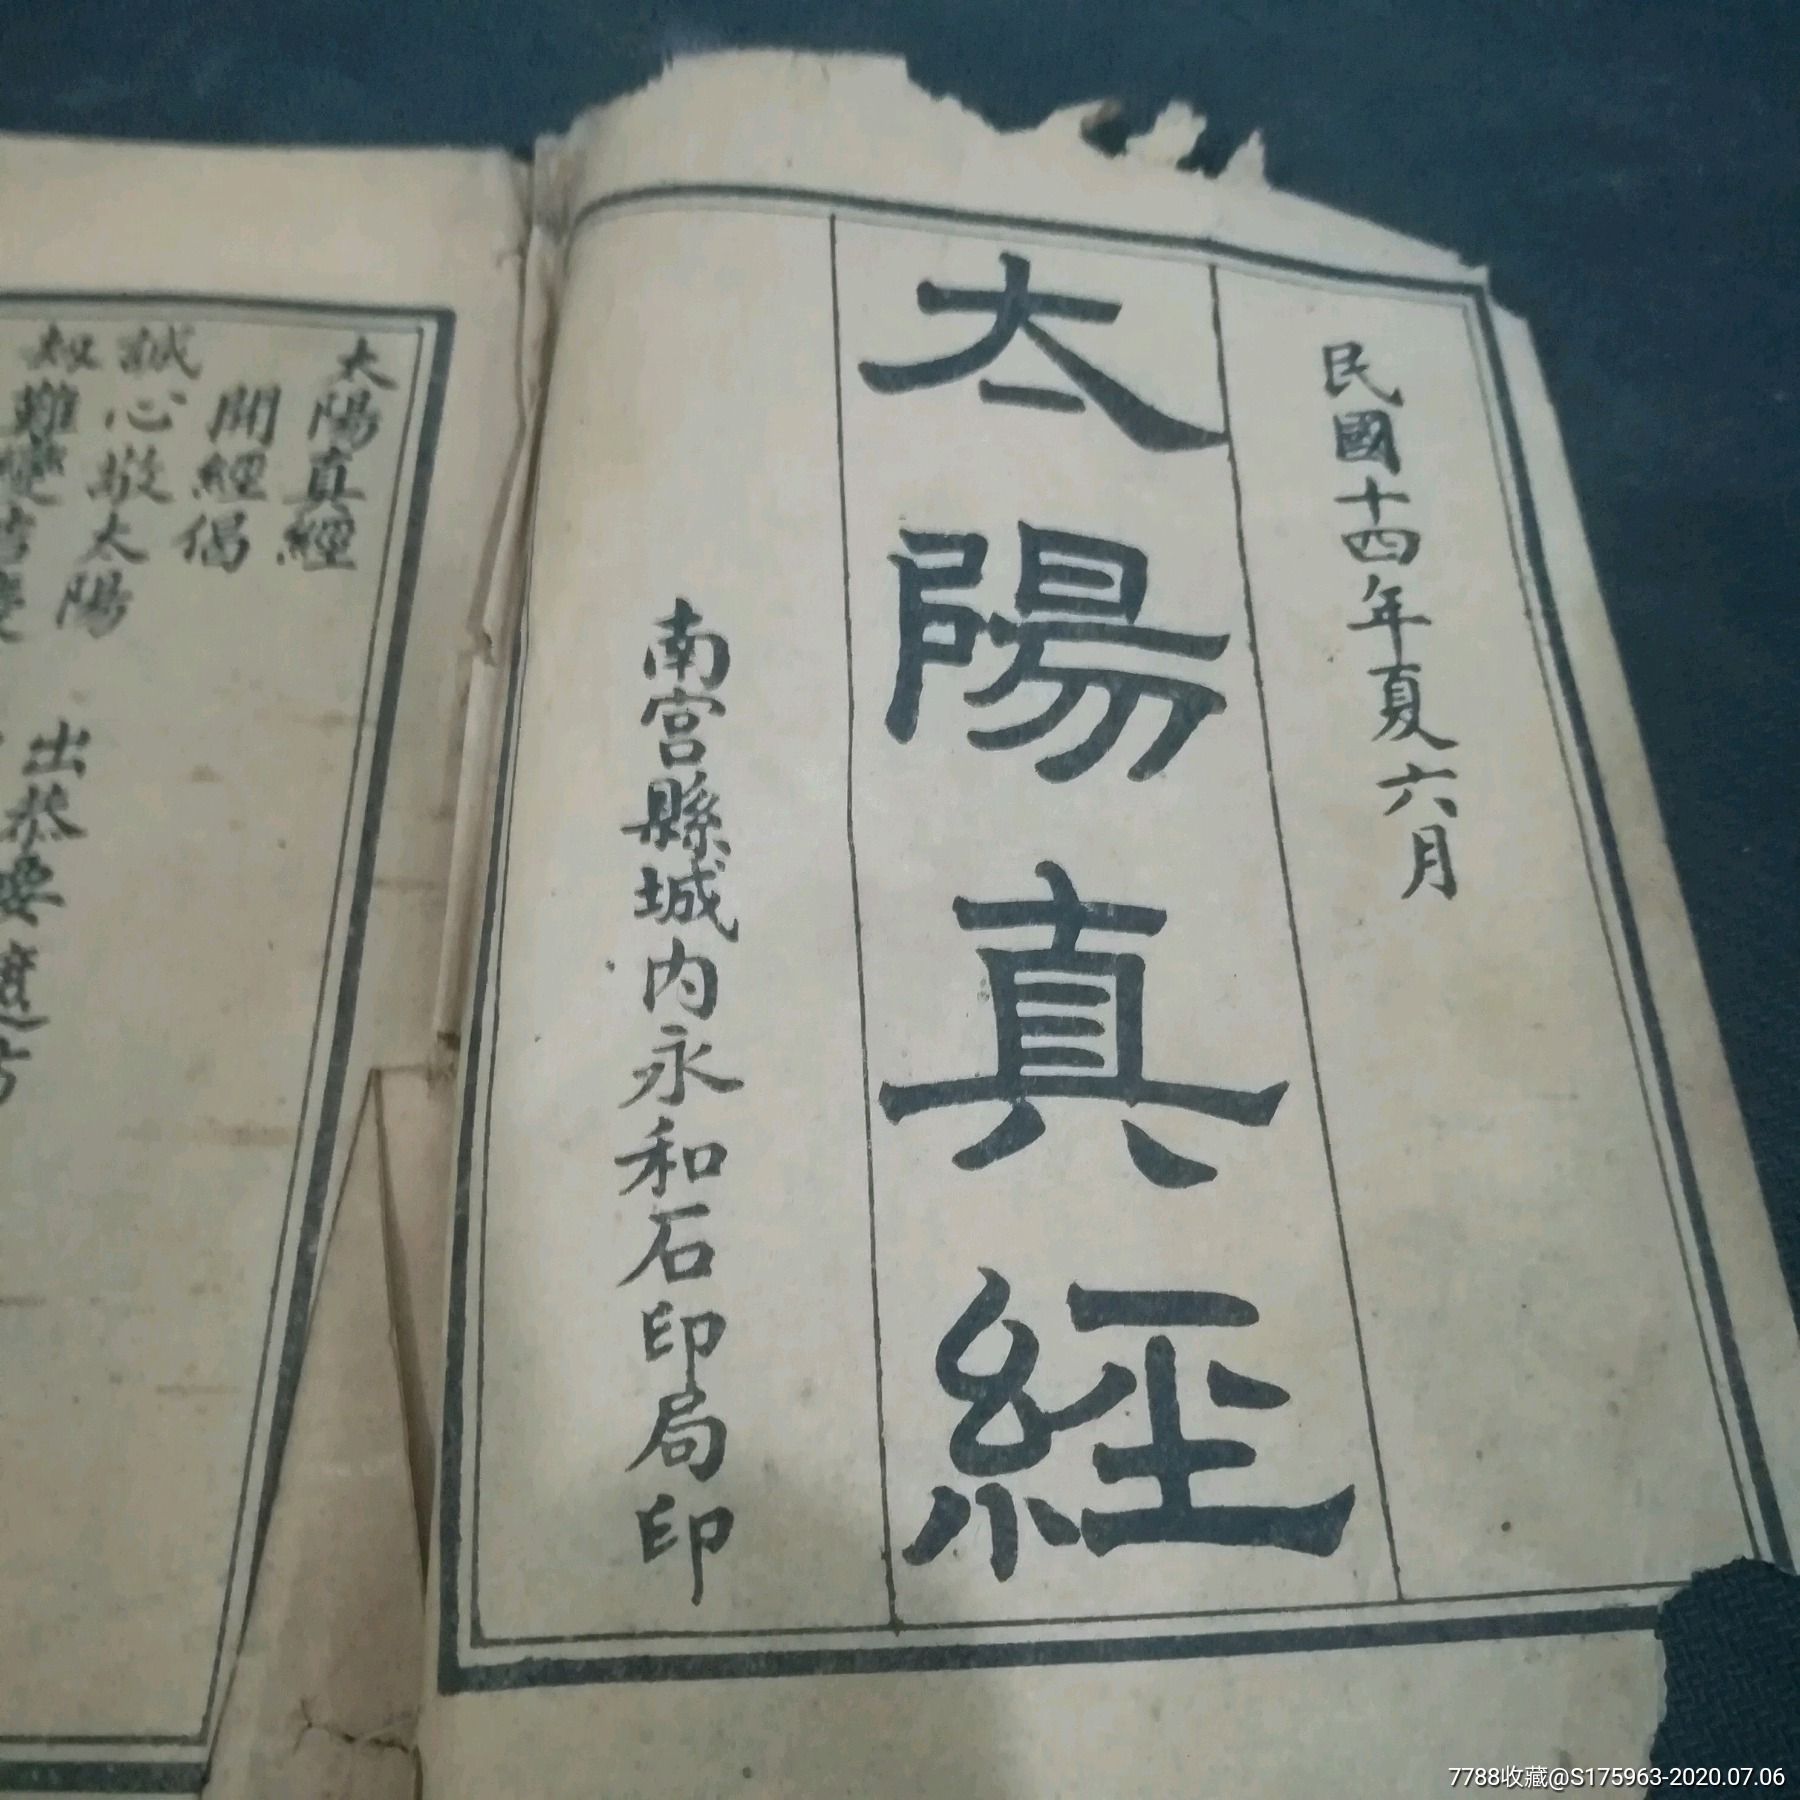 民國十四年夏六月
太陽真經
南宮縣城內永和石印局印
太陽真經
開經偈
誠心敬太陽 出恭要遮方
7788收藏@S175963-2020.07.06